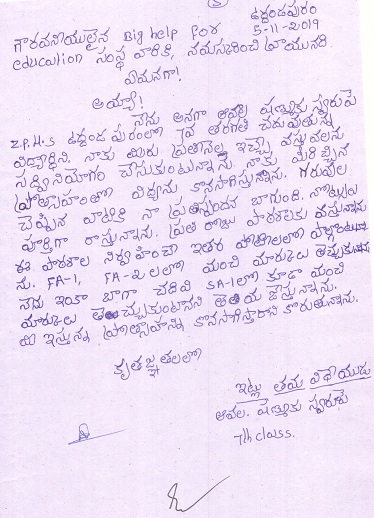 ఉద్దండపురం
5-11-2019
గౌరవనీయులైన Big help for
education సంస్థ వారికి, నమస్కరించి వ్రాయునది
ఏమనగా!
అయ్యా!
నేను అనగా ఆవల షణ్ముక స్వరూప్
Z.P.H.S ఉద్దండపురంలో 7వ తరగతి చదువుతున్న
విద్యార్థిని. నాకు మీరు ప్రతినెల ఇచ్చే వస్తువులను
సద్వినియోగం చేసుకుంటున్నాను. నాకు మీరిచ్చిన
ప్రోత్సాహంతో విద్యను కొనసాగిస్తున్నాను. గురువులు
చెప్పిన వాటికి నా ప్రతిస్పందన బాగుంది. నోట్సులు
పూర్తిగా రాస్తున్నాను. ప్రతి రోజు పాఠశాలకు వస్తున్నాను
ఈ పాఠశాల నిర్వహించే ఇతర పోటీలలో పాల్గొంటున్నా
ను. FA-1, FA-2 లలో మంచి మార్కులు తెచ్చుకున్నాను
నేను ఇంకా బాగా చదివి SA-1లో కూడా మంచి
మార్కులు తెచ్చుకుంటానని తెలియజేస్తున్నాను.
మీ ఇస్తున్న ప్రోత్సాహాన్ని కొనసాగిస్తారని కోరుతున్నాను.
కృతజ్ఞతలతో
ఇట్లు తమ విధేయుడు
ఆవల. షణ్ముక స్వరూప్
7th class.